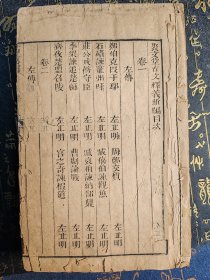 堂古文釋義新編目次
卷一
左傳
鄭伯克段于鄢 左丘明 周鄭交質 左丘明
石碏諫寵州吁 左丘明 臧僖伯諫觀魚 左丘明
莊公戒飭守臣 左丘明 臧哀伯諫納郜鼎 左丘明
季梁諫追楚師 左丘明 曹劌論戰 左丘明
齊伐楚盟召陵 左丘明 宮之奇諫假道 左丘明
卷二
左傳